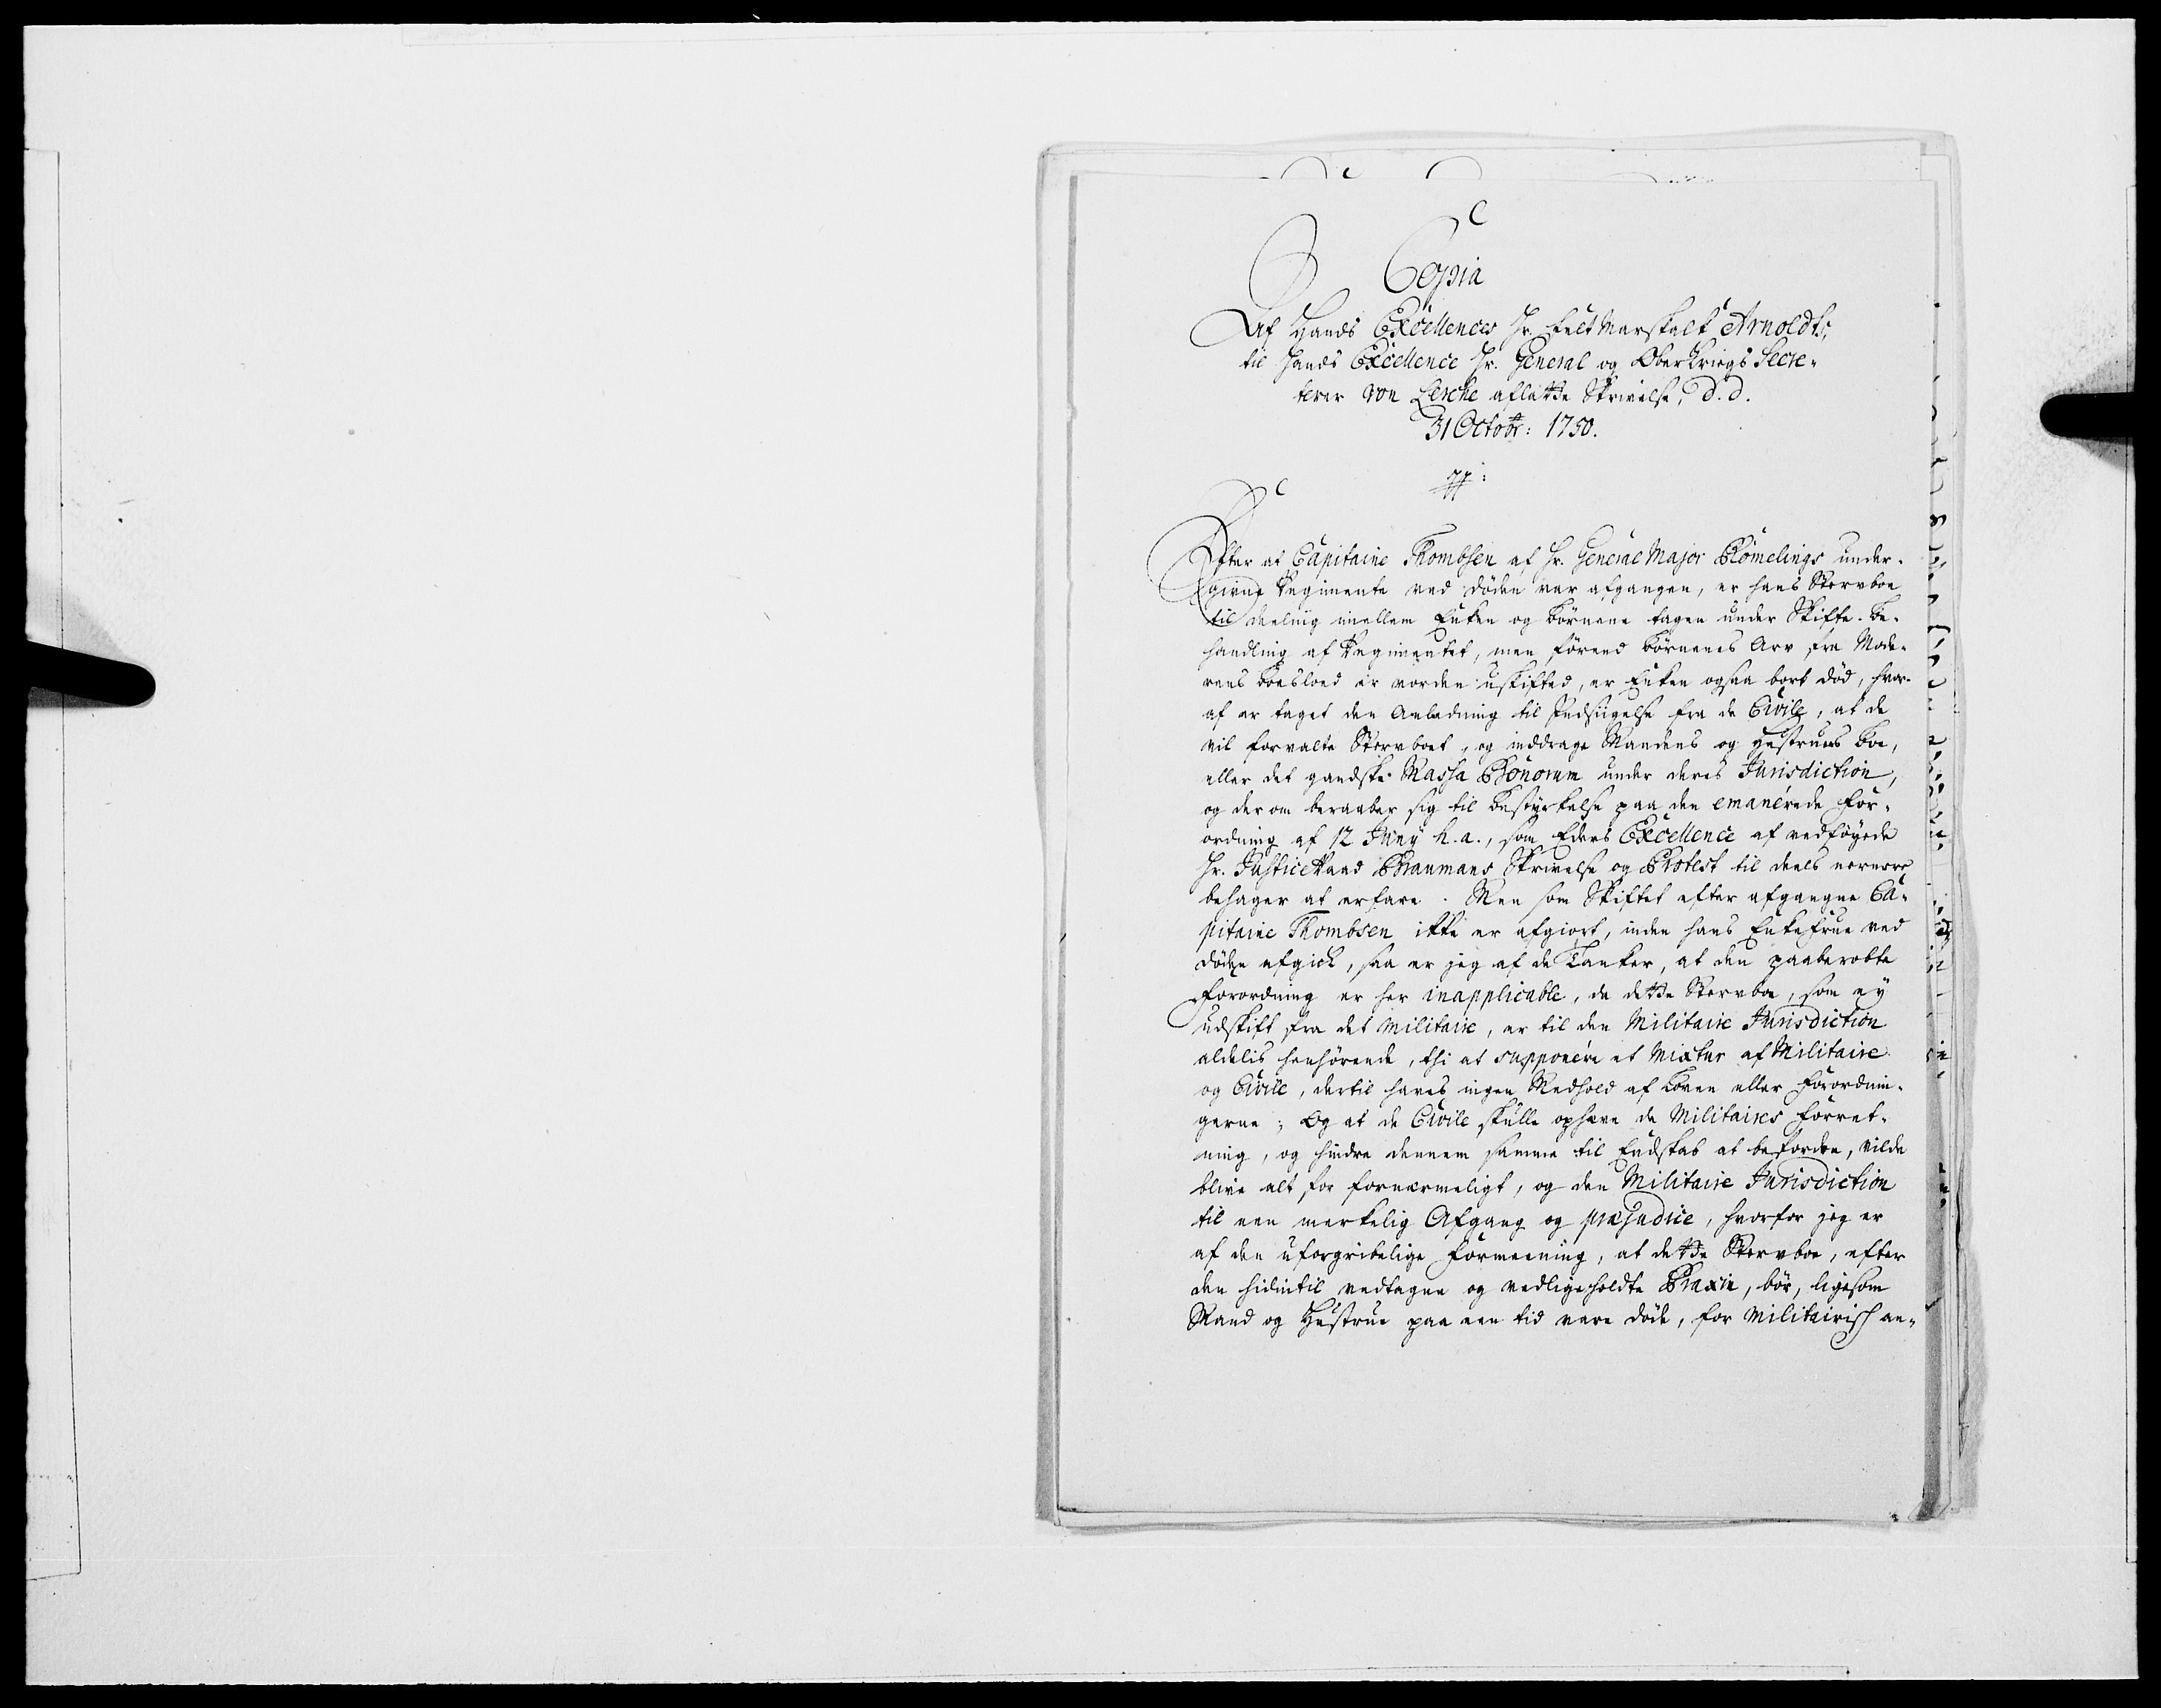 Copia
Af Hands Excellences Hr. Felt Marskalk Arnoldts,
til Hands Excellence Hr. General og Ober Krigs Secre-
terer von Lerche afladte Skrivelse, d. d.
31 Octobr: 1750.
Efter at Capitaine Thombsen af Hr. General Major Rømelings under-
givne Regimente ved døden var afgangen, er hans Stervboe
til deeling imellem Enken og børnene tagen under Skifte-be-
handling af Regimentet, men førend børnenes Arv fra Mode-
rens boeslod er vorden uskifted, er Enken ogsaa bort død, hvor-
af er taget den Anledning til Indsigelse fra de Civile, at de
vil forvalte Stervboet, og inddrage Mandens og Hustrues boe,
eller det gandske Massa Bonorum under deres Jurisdiction,
og derom beraaber sig til bestyrkelse paa den emanerede For-
ordning af 12 Juny h. a., som Eders Excellence af vedføyede
Hr. Justice Raad Braumans Skrivelse og Protest til deels nermere
behager at erfare. Men som Skiftet efter afgangne Ca-
pitaine Thombsen ikke er afgiort, inden hans Enkefrue ved
døden afgick, saa er jeg af de Tanker, at den paaberobte
Forordning er her inapplicable, da dette Stervboe, som ey
udskift fra det Militaire, er til den Militaire Jurisdiction
aldelis henhørende, thi at supponere et Mixtur af Militaire
og Civile, dertil haves ingen Medhold af Loven eller Forordnin-
gerne; Og at de Civile skulle ophæve de Militaires Forret-
ning, og hindre dennem samme til Endskab at befordre, vilde
blive alt for fornærmeligt, og den Militaire Jurisdiction
til een merkelig Afgang og præjudice, hvorfor jeg er
af den uforgribelige Formeening, at dette Stervboe, efter
den hidintil vedtagne og vedligeholdte Praxin, bør, ligesom
Mand og Hustrue paa een tid vare døde, for Militairisch an-